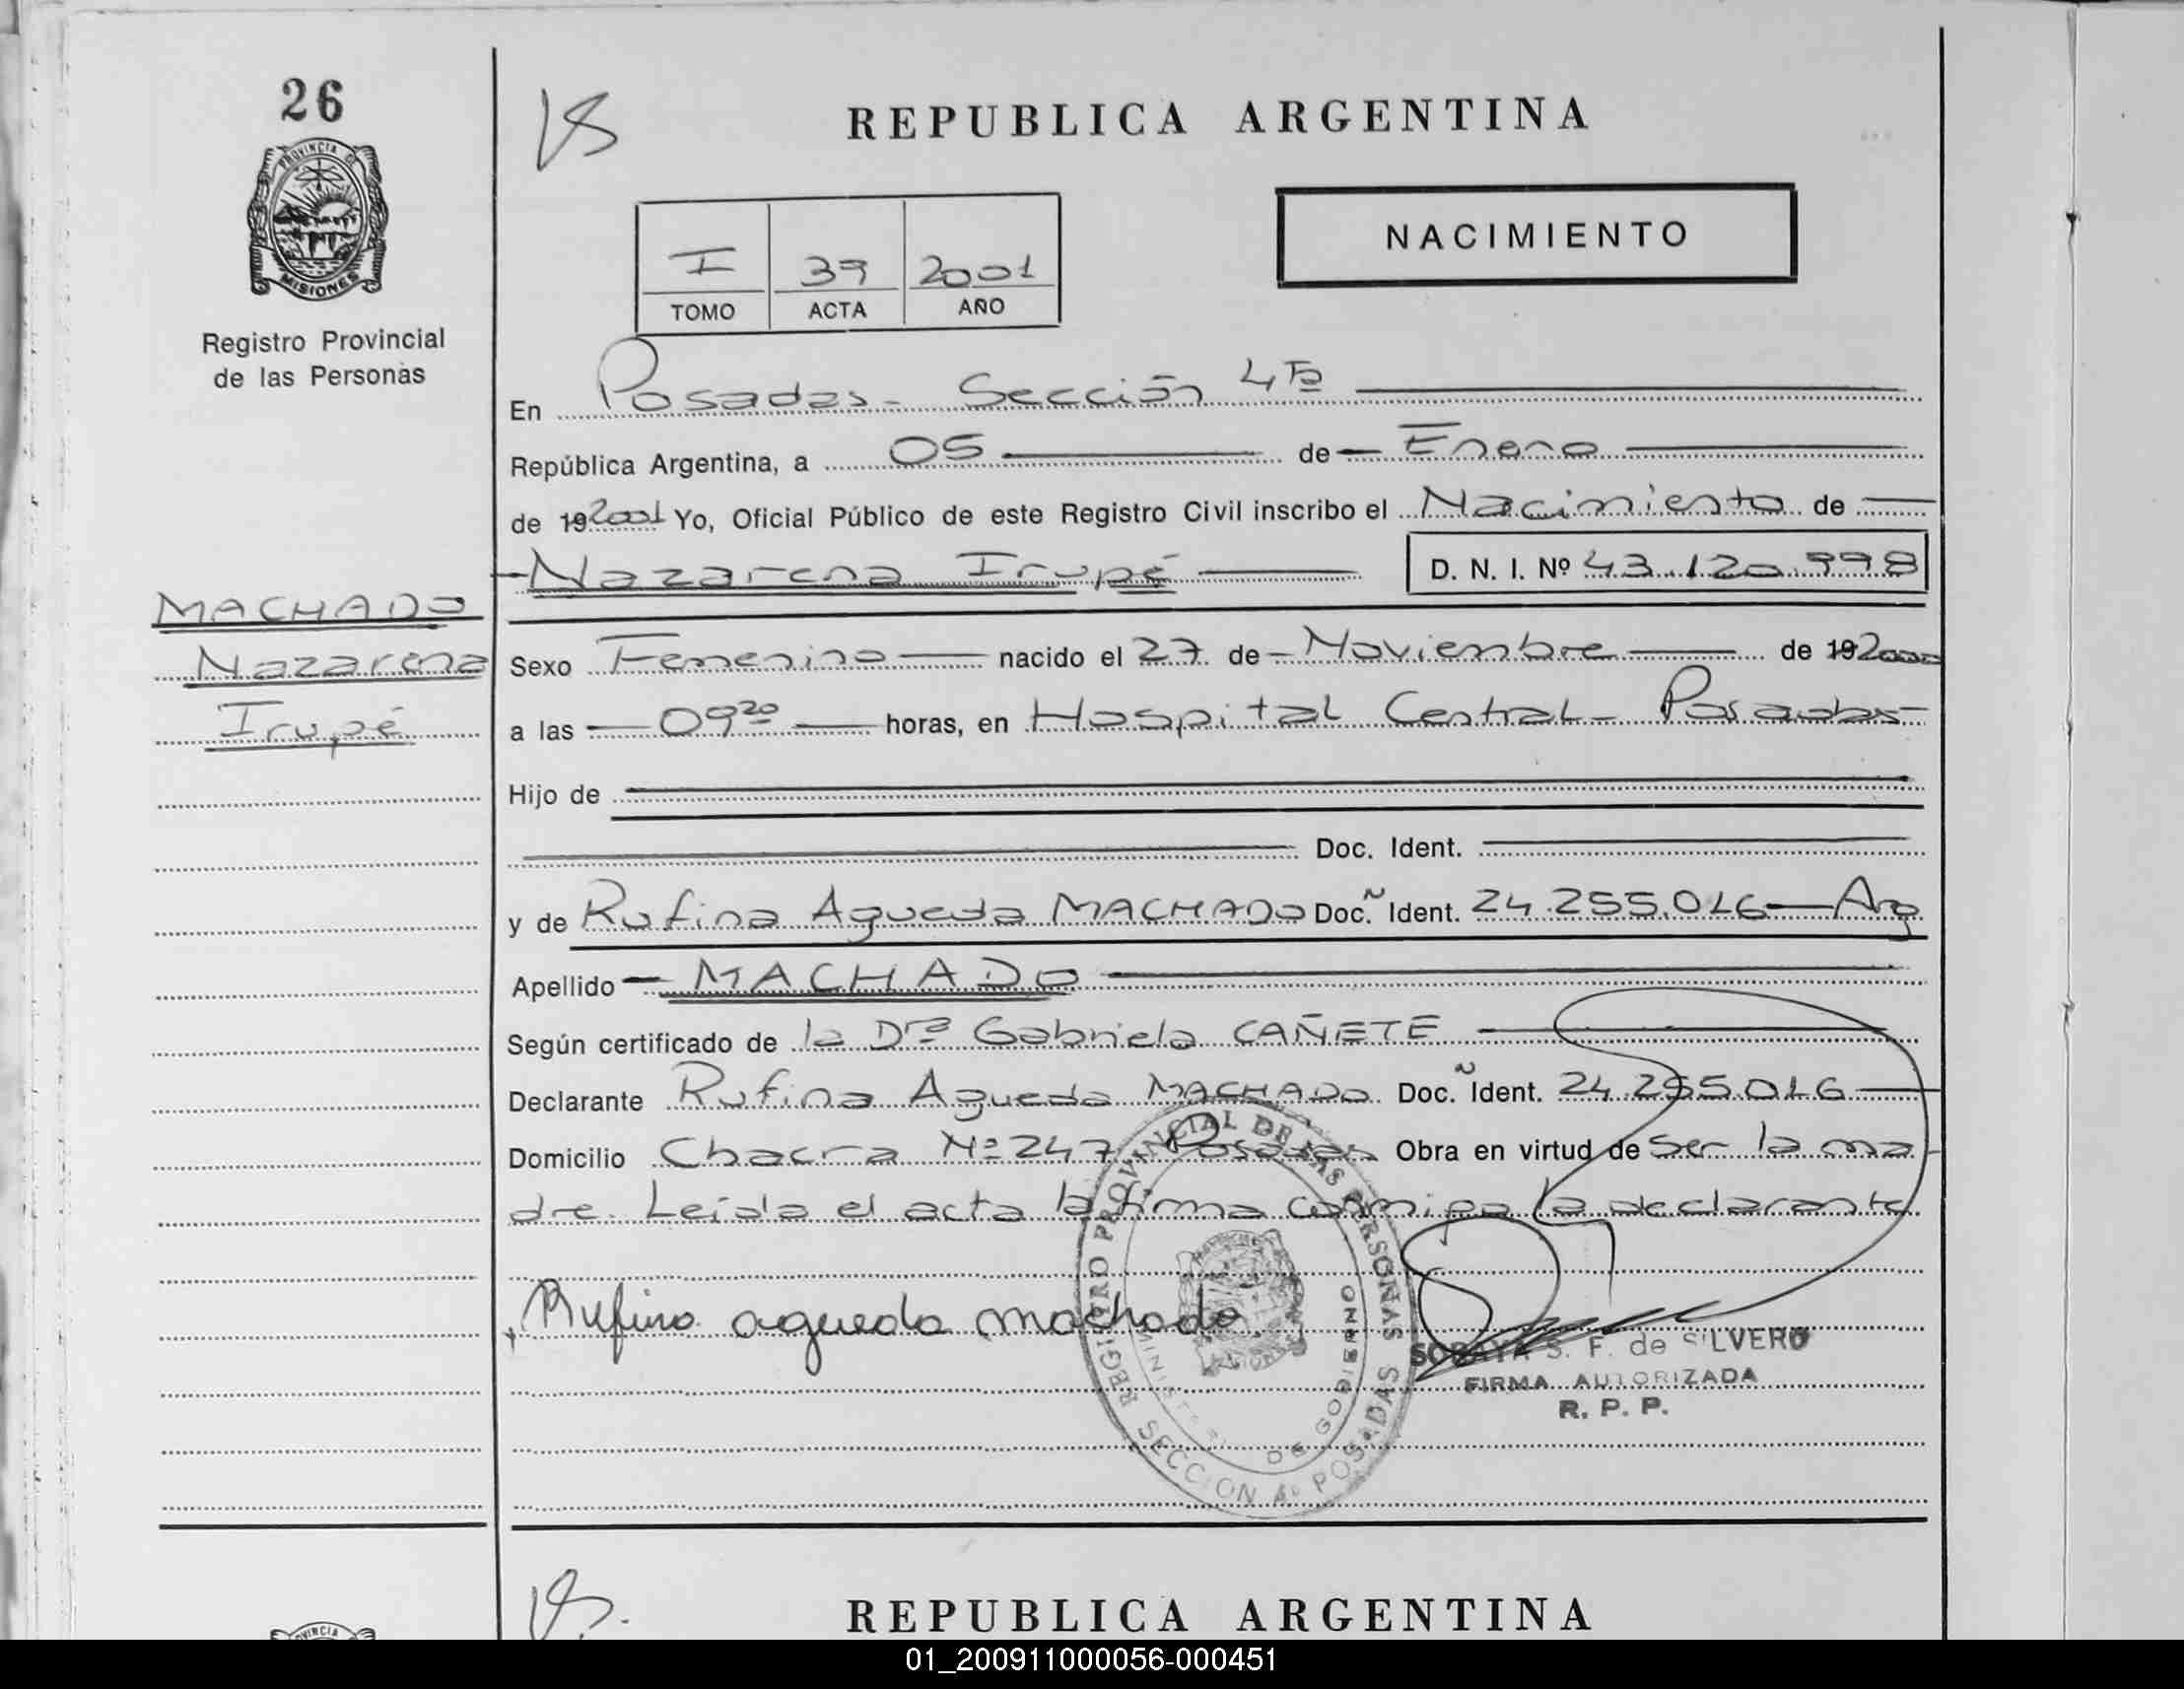 26
PROVINCIA DE
MISIONES
Registro Provincial
de las Personas
MACHADO
Nazarena
Irupé
REPUBLICA ARGENTINA
NACIMIENTO
I 39 2001
TOMO ACTA AÑO
En Posadas - Sección 4ta
República Argentina, a 05 de Enero
de 192001 Yo, Oficial Público de este Registro Civil inscribo el Nacimiento de
Nazarena Irupé D. N. I. Nº 43.120.998
Sexo Femenino nacido el 27 de Noviembre de 192000
a las 09 20 horas, en Hospital Central - Posadas
Hijo de
Doc. Ident.
y de Rufina Agueda MACHADO Doc. Ident. 24.255.016 - Arg
Apellido MACHADO
Según certificado de la Dra Gabriela CAÑETE
Declarante Rufina Agueda MACHADO Doc. Ident. 24.255.016
Domicilio Chacra Nº 247 Posadas Obra en virtud de ser la ma
dre. Leída el acta la firma conmigo la declarante
Rufina agueda machado
REGISTRO PROVINCIAL DE LAS PERSONAS
SECCION 4a POSADAS
DE GOBIERNO
SORAYA S. F. de SILVERO
FIRMA AUTORIZADA
R. P. P.
REPUBLICA ARGENTINA
01_200911000056-000451